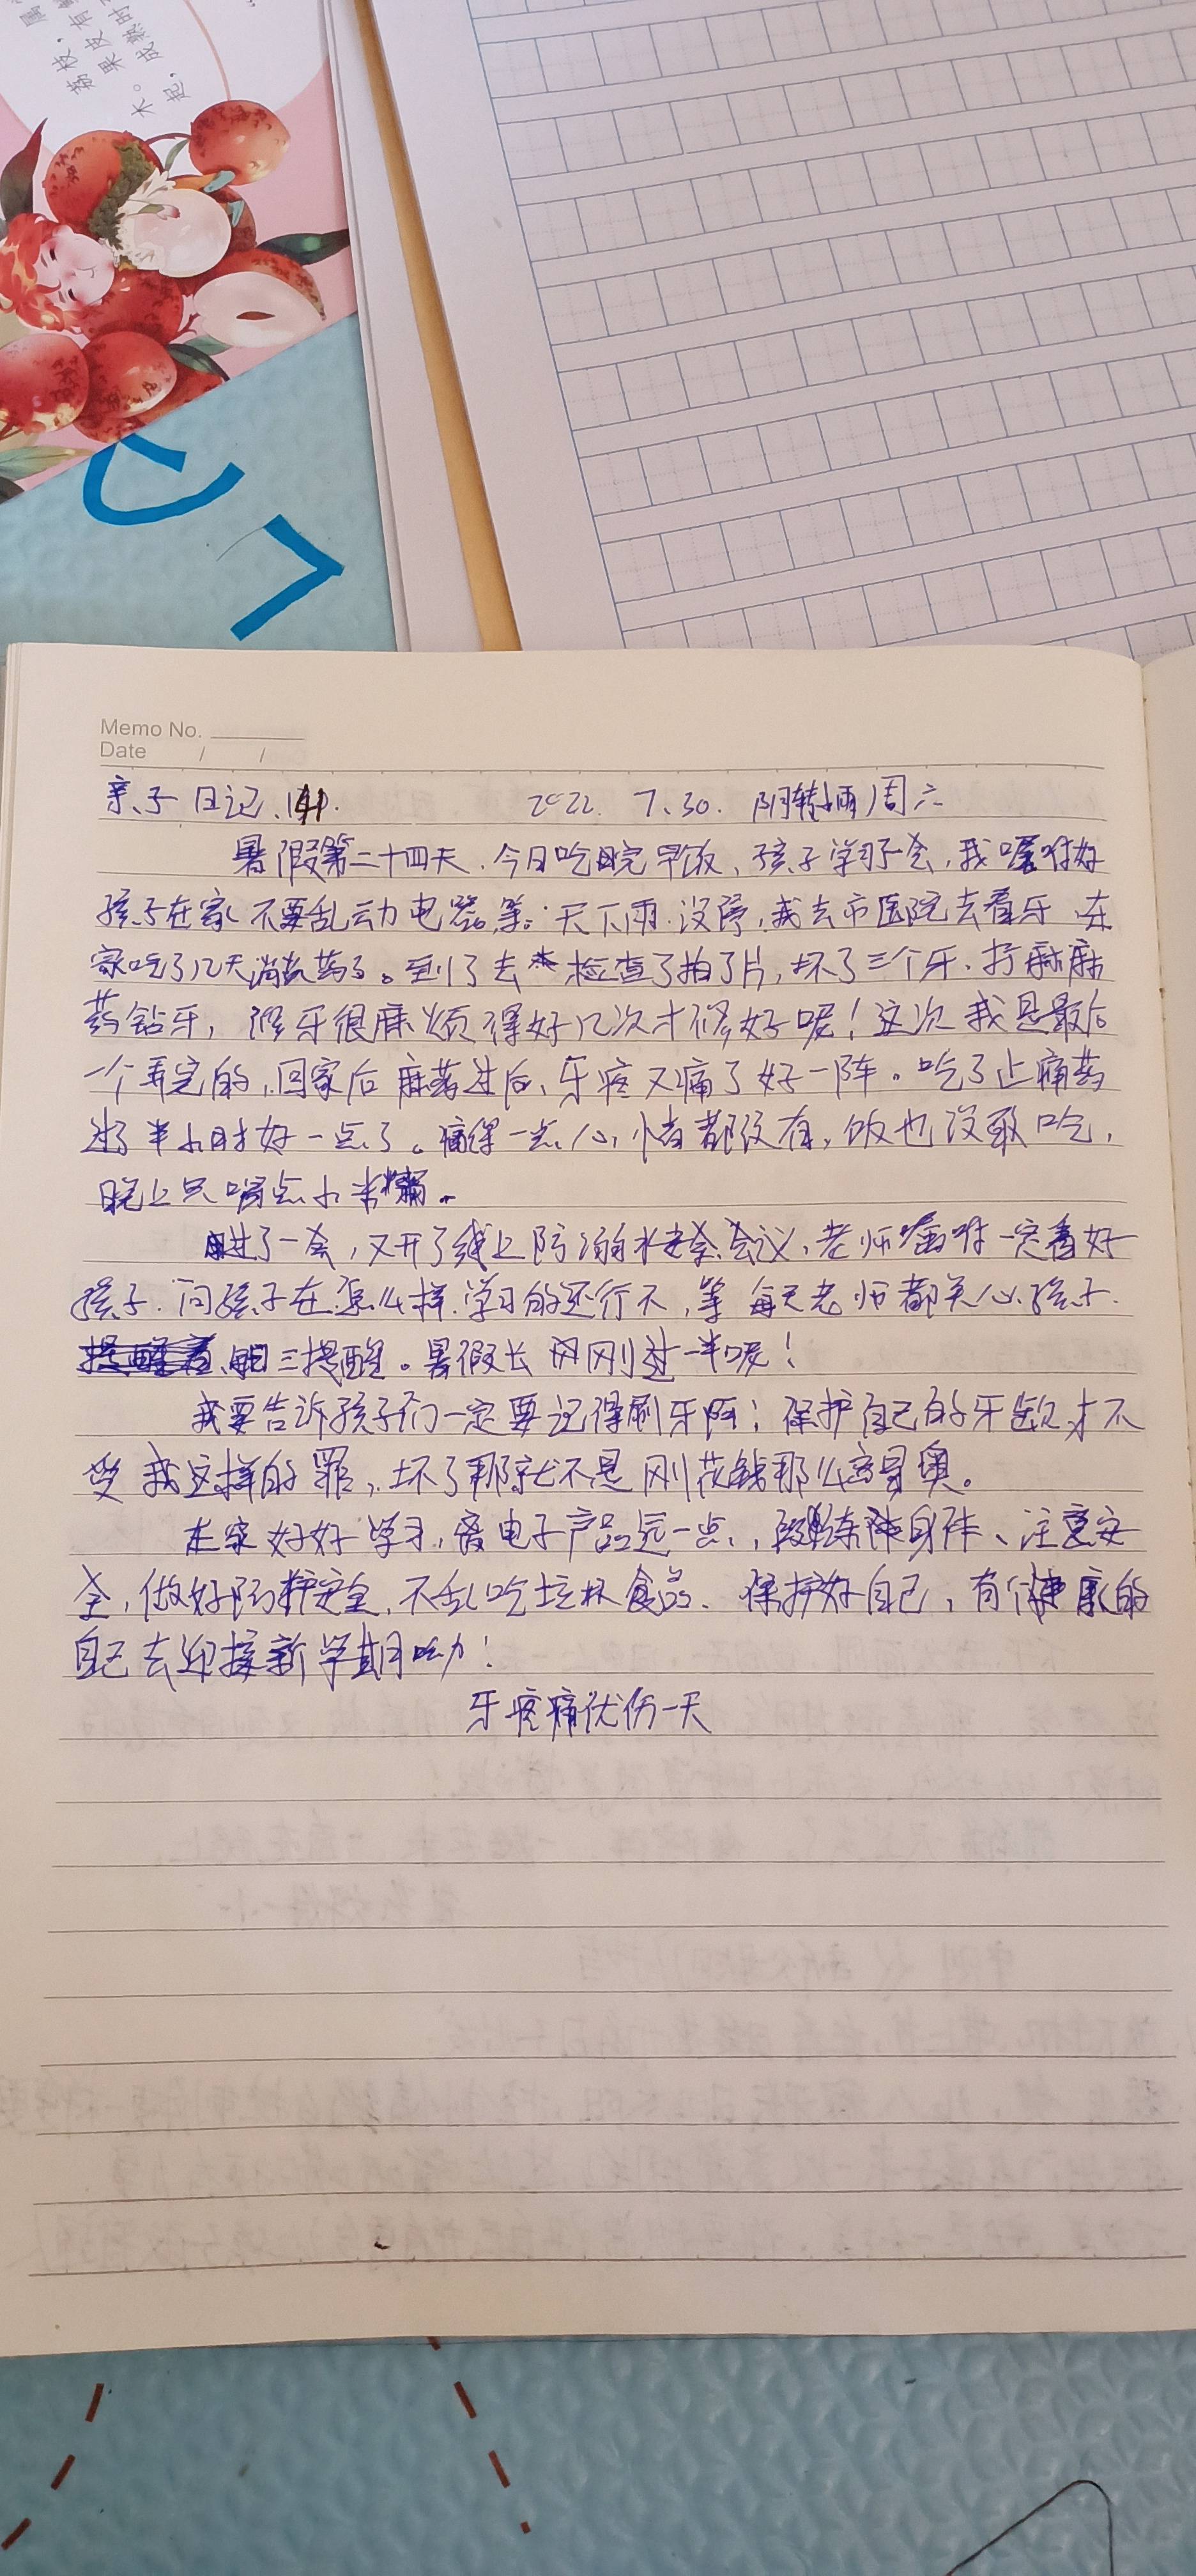 荔枝，
果皮有
成熟时
木。
起，
Memo No.
Date / /
亲子日记、141.  2022. 7、30. 阴转小雨 周六
暑假第二十四天、今日吃完早饭、孩子学习会，我嘱咐好
孩子在家不要乱动电器等。天下雨没停，我去市医院去看牙、在
家吃了几天消炎药了。到了去检查了拍了片，坏了三个牙、打麻
药钻牙，修牙很麻烦得好几次才修好呢！这次我是最后
一个弄完的，回家后麻药过后、牙疼又痛了好一阵。吃了止痛药
过了半小时才好一点了。痛得一点心情都没有，饭也没敢吃，
晚上只喝点小米粥。
过了一会，又开了线上防溺水安全会议，老师嘱咐一定看好
孩子、问孩子在怎么样、学习的还行不，等 每天老师都关心孩子、
三提醒。暑假长 刚过一半呢！
我要告诉孩子们一定要记得刷牙啊！保护自己的牙齿才不
受我这样的罪，坏了那就不是刚花钱那么容易
在家好好学习，离电子产品远一点，锻炼身体、注意安
全，做好防护安全、不乱吃垃圾食品、保护好自己，有个健康的
自己去迎接新学期呦！
牙疼痛忧伤一天